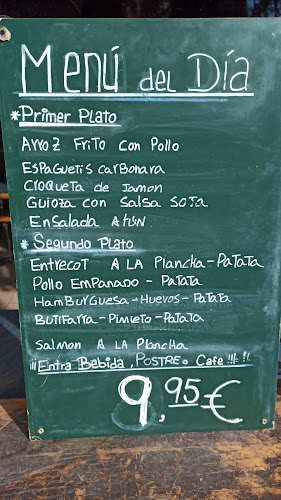 Menú del Día
*Primer Plato
Arroz Frito con Pollo
Espaguetis carbonara
Croqueta de Jamon
Guioza con Salsa Soja
Ensalada Atún
*Segundo Plato
Entrecot A LA Plancha-Patata
Pollo Empanado - Patata
Hamburguesa-Huevos-Patata
Butifarra-Pimieto-Patata
Salmon A LA Plancha
¡¡¡Entra Bebida, Postre o Cafe!!!
9,95€